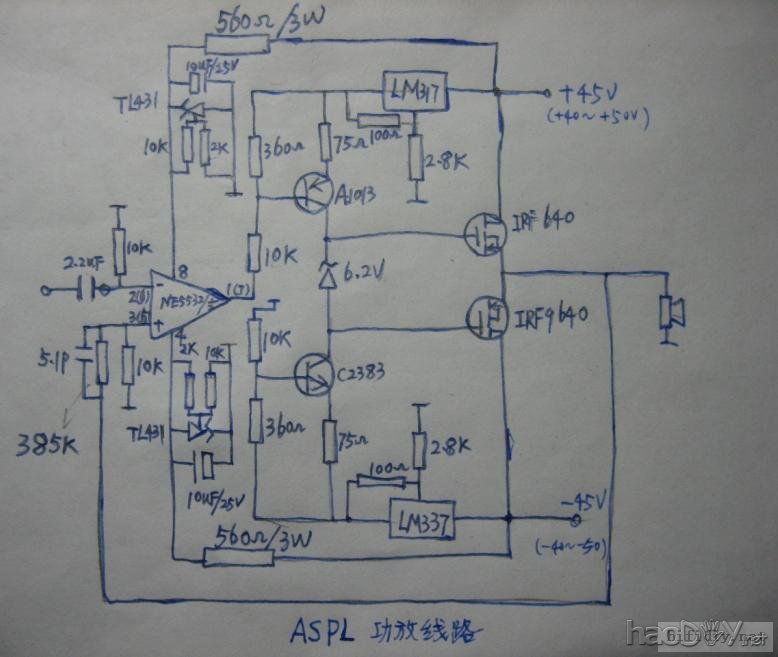 560Ω/3W
10UF/25V
TL431
10K
2K
360Ω
75Ω
LM317
100Ω
2.8K
+45V
(+40~+50V)
A1013
IRF640
10K
2.2UF
10K
8
2(6)
NE5532/2
1(7)
6.2V
3(5)
4
IRF9640
5.1P
10K
2K
10K
10K
C2383
385K
TL431
360Ω
75Ω
2.8K
100Ω
10UF/25V
LM337
-45V
(-40~-50)
560Ω/3W
ASPL 功放线路